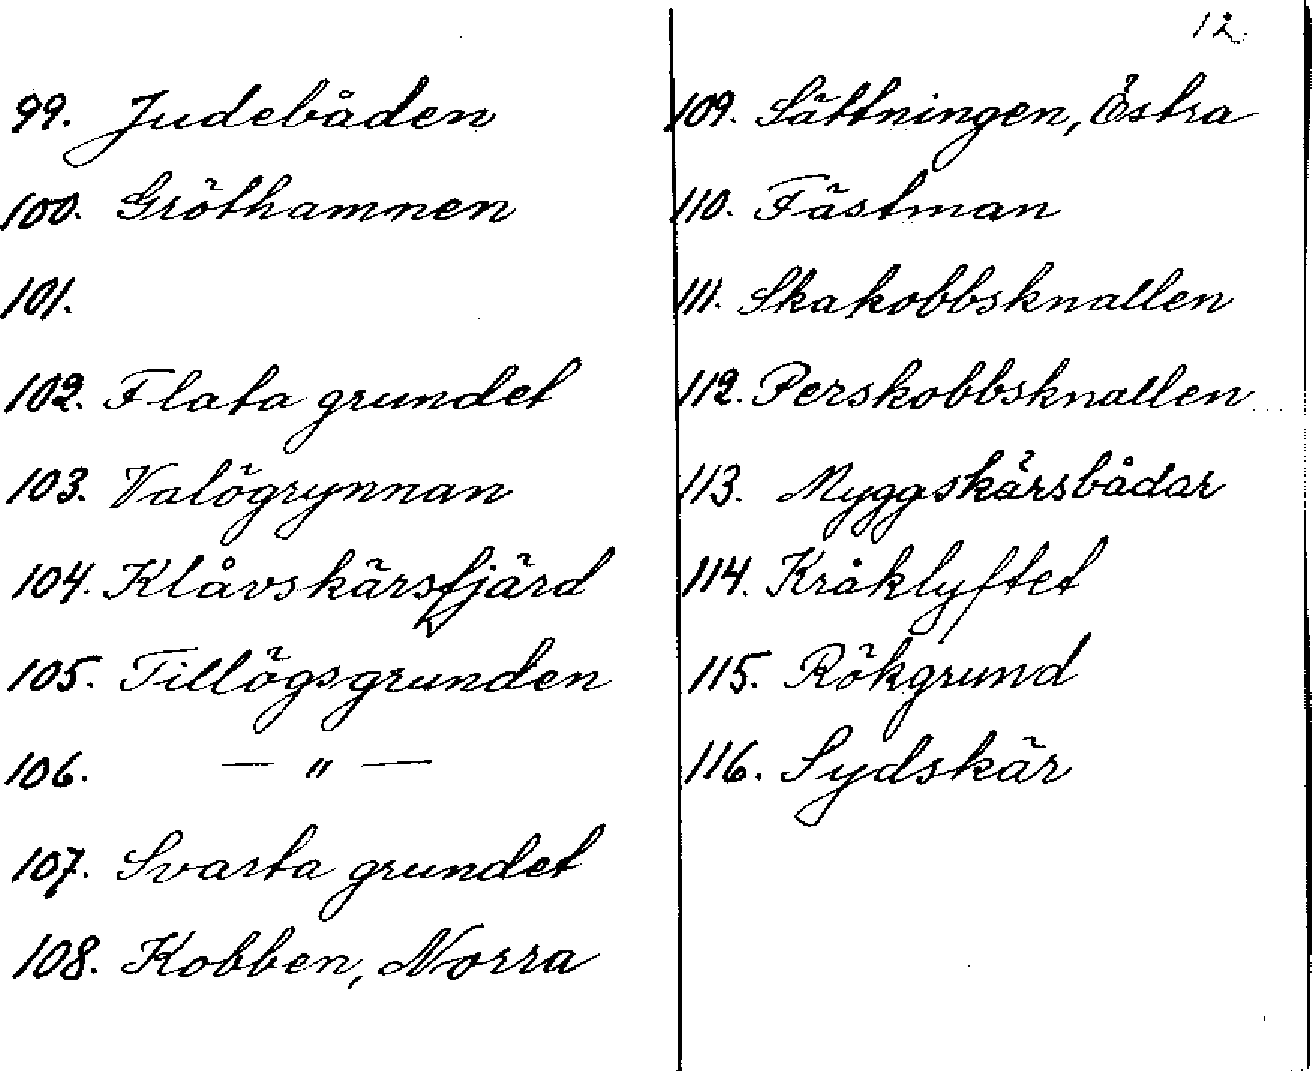 12.
99. Judebåden
100. Gröthamnen
101.
102. Flata grundet
103. Valögrynnan
104. Klåvskärsfjärd
105. Tillögsgrunden
106. — " —
107. Svarta grundet
108. Kobben, Norra
109. Sättningen, Östra
110. Fästman
111. Skakobbsknallen
112. Perskobbsknallen
113. Myggskärsbådar
114. Kråklyftet
115. Rökgrund
116. Sydskär